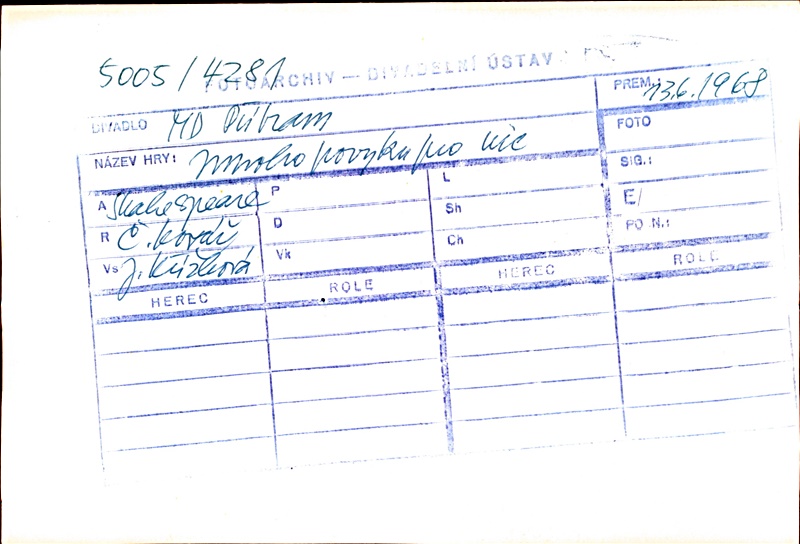 5005/4281
FOTOARCHIV — DIVADELNÍ ÚSTAV
PREM. 13.6.1968
DIVADLO MD Příbram
FOTO
NÁZEV HRY: mnoho povyku pro nic
SIG.:
A Shakespeare P L
E/
R Č. Kovář D Sh
PO N.:
Vs J. Křížková Vk Ch
HEREC ROLE HEREC ROLE